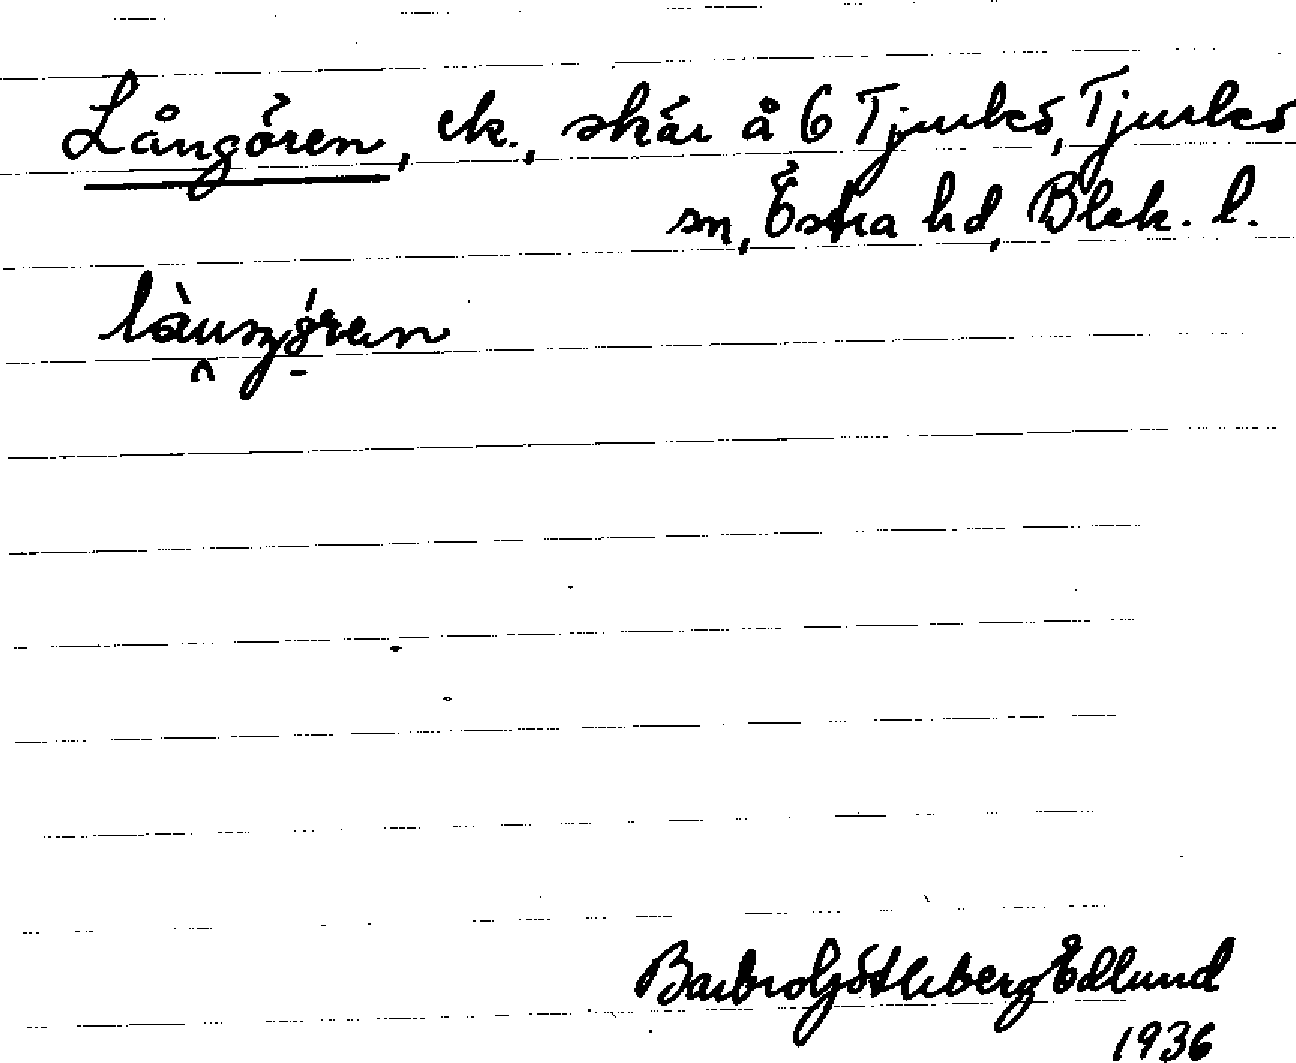 Långören, ek., skär å 6 Tjurkö, Tjurkö
sn, Östra hd, Blek. l.
Barbro Götleberg Edlund
1936